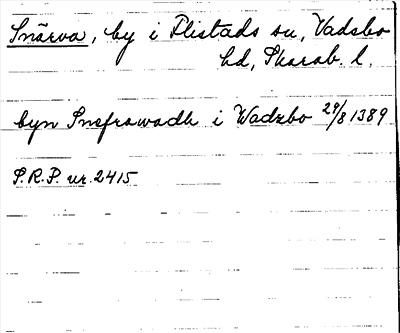 Snärva, by i Flistads sn, Vadsbo
hd, Skarab. l.
byn Snsfrawadh i Wadzbo 29/8 1389
S.R.P. nr. 2415